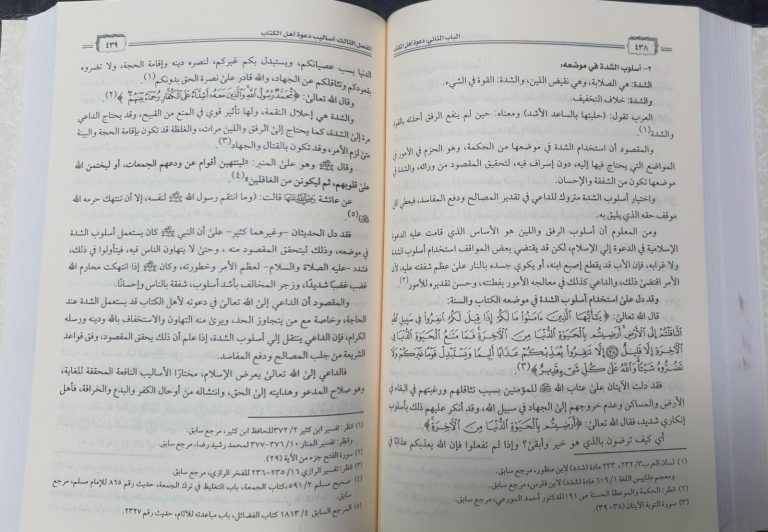 ٤٣٨
الباب الثاني: دعوة أهل الكتاب
٢- أسلوب الشدة في موضعه:
الشدة: هي الصلابة، وهي نقيض اللين، والشدة: القوة في الشيء.
والشدة: خلاف التخفيف.
العرب تقول: (حلبتها بالساعد الأشد) ومعناه: حين لم ينفع الرفق أخذته بالقوة
والشدة(١).
والمقصود أن استخدام الشدة في موضعها من الحكمة، وهو الحزم في الأمور في
المواضع التي يحتاج فيها إليه، دون إسراف فيه، لتحقيق المقصود من ورائه، والشدة في
موضعها تكون من الشفقة والإحسان.
واختيار أسلوب الشدة متروك للداعي في تقدير المصالح ودفع المفاسد، فيعطي كل
موقف حقه الذي يليق به.
ومن المعلوم أن أسلوب الرفق واللين هو الأساس الذي قامت عليه الدعوة
الإسلامية في الدعوة إلى الإسلام، لكن قد يقتضي بعض المواقف استخدام أسلوب الشدة
ولا غرابه، فإن الأب قد يقطع إصبع ابنه، أو يكوي جسده بالنار على عظم شفقته عليه، لأن
الأمر اقتضى ذلك، والداعي كذلك في معالجه الأمور بفطنته، وحسن تقديره للأمور(٢)
وقد دل على استخدام أسلوب الشدة في موضعه الكتاب والسنة:
قال الله تعالى: ﴿يَٰٓأَيُّهَا ٱلَّذِينَ ءَامَنُوا۟ مَا لَكُمْ إِذَا قِيلَ لَكُمُ ٱنفِرُوا۟ فِى سَبِيلِ ٱللَّهِ
ٱثَّاقَلْتُمْ إِلَى ٱلْأَرْضِ أَرَضِيتُم بِٱلْحَيَوٰةِ ٱلدُّنْيَا مِنَ ٱلْـَٔاخِرَةِ فَمَا مَتَٰعُ ٱلْحَيَوٰةِ ٱلدُّنْيَا فِى
ٱلْـَٔاخِرَةِ إِلَّا قَلِيلٌ ۝ إِلَّا تَنفِرُوا۟ يُعَذِّبْكُمْ عَذَابًا أَلِيمًا وَيَسْتَبْدِلْ قَوْمًا غَيْرَكُمْ وَلَا
تَضُرُّوهُ شَيْـًٔا وَٱللَّهُ عَلَىٰ كُلِّ شَىْءٍ قَدِيرٌ﴾(٣).
فقد دلت الآيتان على عتاب الله ﷻ للمؤمنين بسبب تثاقلهم ورغبتهم في البقاء في
الأرض والمساكن وعدم خروجهم إلى الجهاد في سبيل الله، وقد أنكر عليهم ذلك بأسلوب
إنكاري شديد، فقال الله تعالى: ﴿أَرَضِيتُم بِٱلْحَيَوٰةِ ٱلدُّنْيَا مِنَ ٱلْـَٔاخِرَةِ﴾
أي كيف ترضون بالذي هو خير وأبقى؟ وإذا لم تفعلوا فإن الله يعذبكم عذابًا في
(١) لسان العرب ٢٣٢/٣، ٢٣٣ مادة (شدد) لابن منظور، مرجع سابق.
ومعجم مقاييس اللغة ٦٠٩/١ مادة (شد) لابن فارس، مرجع سابق.
(٢) انظر: الحكمة والموعظة الحسنة ص ١٩١ للدكتور أحمد المورعي، مرجع سابق.
(٣) سورة التوبة الآيتان (٣٨- ٣٩)
الفصل الثالث: أساليب دعوة أهل الكتاب
٤٣٩
الدنيا بسبب عصيانكم، ويستبدل بكم غيركم، لنصره دينه وإقامة الحجة، ولا تضروه
بقعودكم وتثاقلكم عن الجهاد، والله قادر على نصرة الحق بدونكم(١)
وقال الله تعالى: ﴿مُّحَمَّدٌ رَّسُولُ ٱللَّهِ وَٱلَّذِينَ مَعَهُۥٓ أَشِدَّآءُ عَلَى ٱلْكُفَّارِ رُحَمَآءُ بَيْنَهُمْ﴾(٢).
والشدة هي إحلال النقمة، ولها تأثير قوي في المنع من القبيح، وقد يحتاج الداعي
مرة إلى الشدة، كما يحتاج إلى الرفق واللين مرات، والغلظة قد تكون بإقامة الحجة والبينة
متى لزم الأمر، وقد تكون بالقتال والجهاد(٣).
وقال ﷺ وهو على المنبر: «لينتهين أقوام عن ودعهم الجمعات، أو ليختمن الله
على قلوبهم، ثم ليكونن من الغافلين»(٤).
عن عائشة رضي الله عنها قالت: (وما انتقم رسول الله ﷺ لنفسه، إلا أن تنتهك حرمه الله
ﷻ)(٥).
فقد دل الحديثان -وغيرهما كثير- على أن النبي ﷺ كان يستعمل أسلوب الشدة
في موضعه، وذلك ليتحقق المقصود منه، وحتى لا يتهاون الناس فيه، فيتأولوا في ذلك،
فشدد -عليه الصلاة والسلام- لعظم الأمر وخطورته، وكان ﷺ إذا انتهكت محارم الله
غضب غضبًا شديدًا، وزجر المخالف بأشد أسلوب، شفقة بالناس وإحسانًا.
والمقصود أن الداعي إلى الله تعالى في دعوته لأهل الكتاب قد يستعمل الشدة عند
الحاجة، وخاصة مع من يتجاوز الحد، ويرى منه التهاون والاستخفاف بالله ودينه ورسله
الكرام، فإن الداعي ينتقل إلى أسلوب الشدة، إذا علم أن ذلك يحقق المقصود، وفق قواعد
الشريعة من جلب المصالح ودفع المفاسد.
فالداعي إلى الله تعالى يعرض الإسلام، مختارًا الأساليب النافعة المحققة للغاية،
وهو صلاح المدعو وهدايته إلى الحق، وانتشاله من أوحال الكفر والبدع والخرافة، فأهل
(١) انظر: تفسير ابن كثير ٣٧٢/٢ للحافظ ابن كثير، مرجع سابق.
وانظر: تفسير المنار ٣٧٦/١٠-٣٧٧ لمحمد رشيد رضا، مرجع سابق.
(٢) سورة الفتح جزء من الآية (٢٩).
(٣) انظر: تفسير الرازي ٢٣٥/١٦-٢٣٦ للفخر الرازي، مرجع سابق.
(٤) صحيح مسلم ٥٩١/٢، كتاب الجمعة، باب التغليظ في ترك الجمعة، حديث رقم ٨٦٥ للإمام مسلم، مرجع
سابق.
(٥) المرجع السابق ١٨١٣/٤ كتاب الفضائل، باب مباعدته للآثام، حديث رقم ٢٣٢٧.